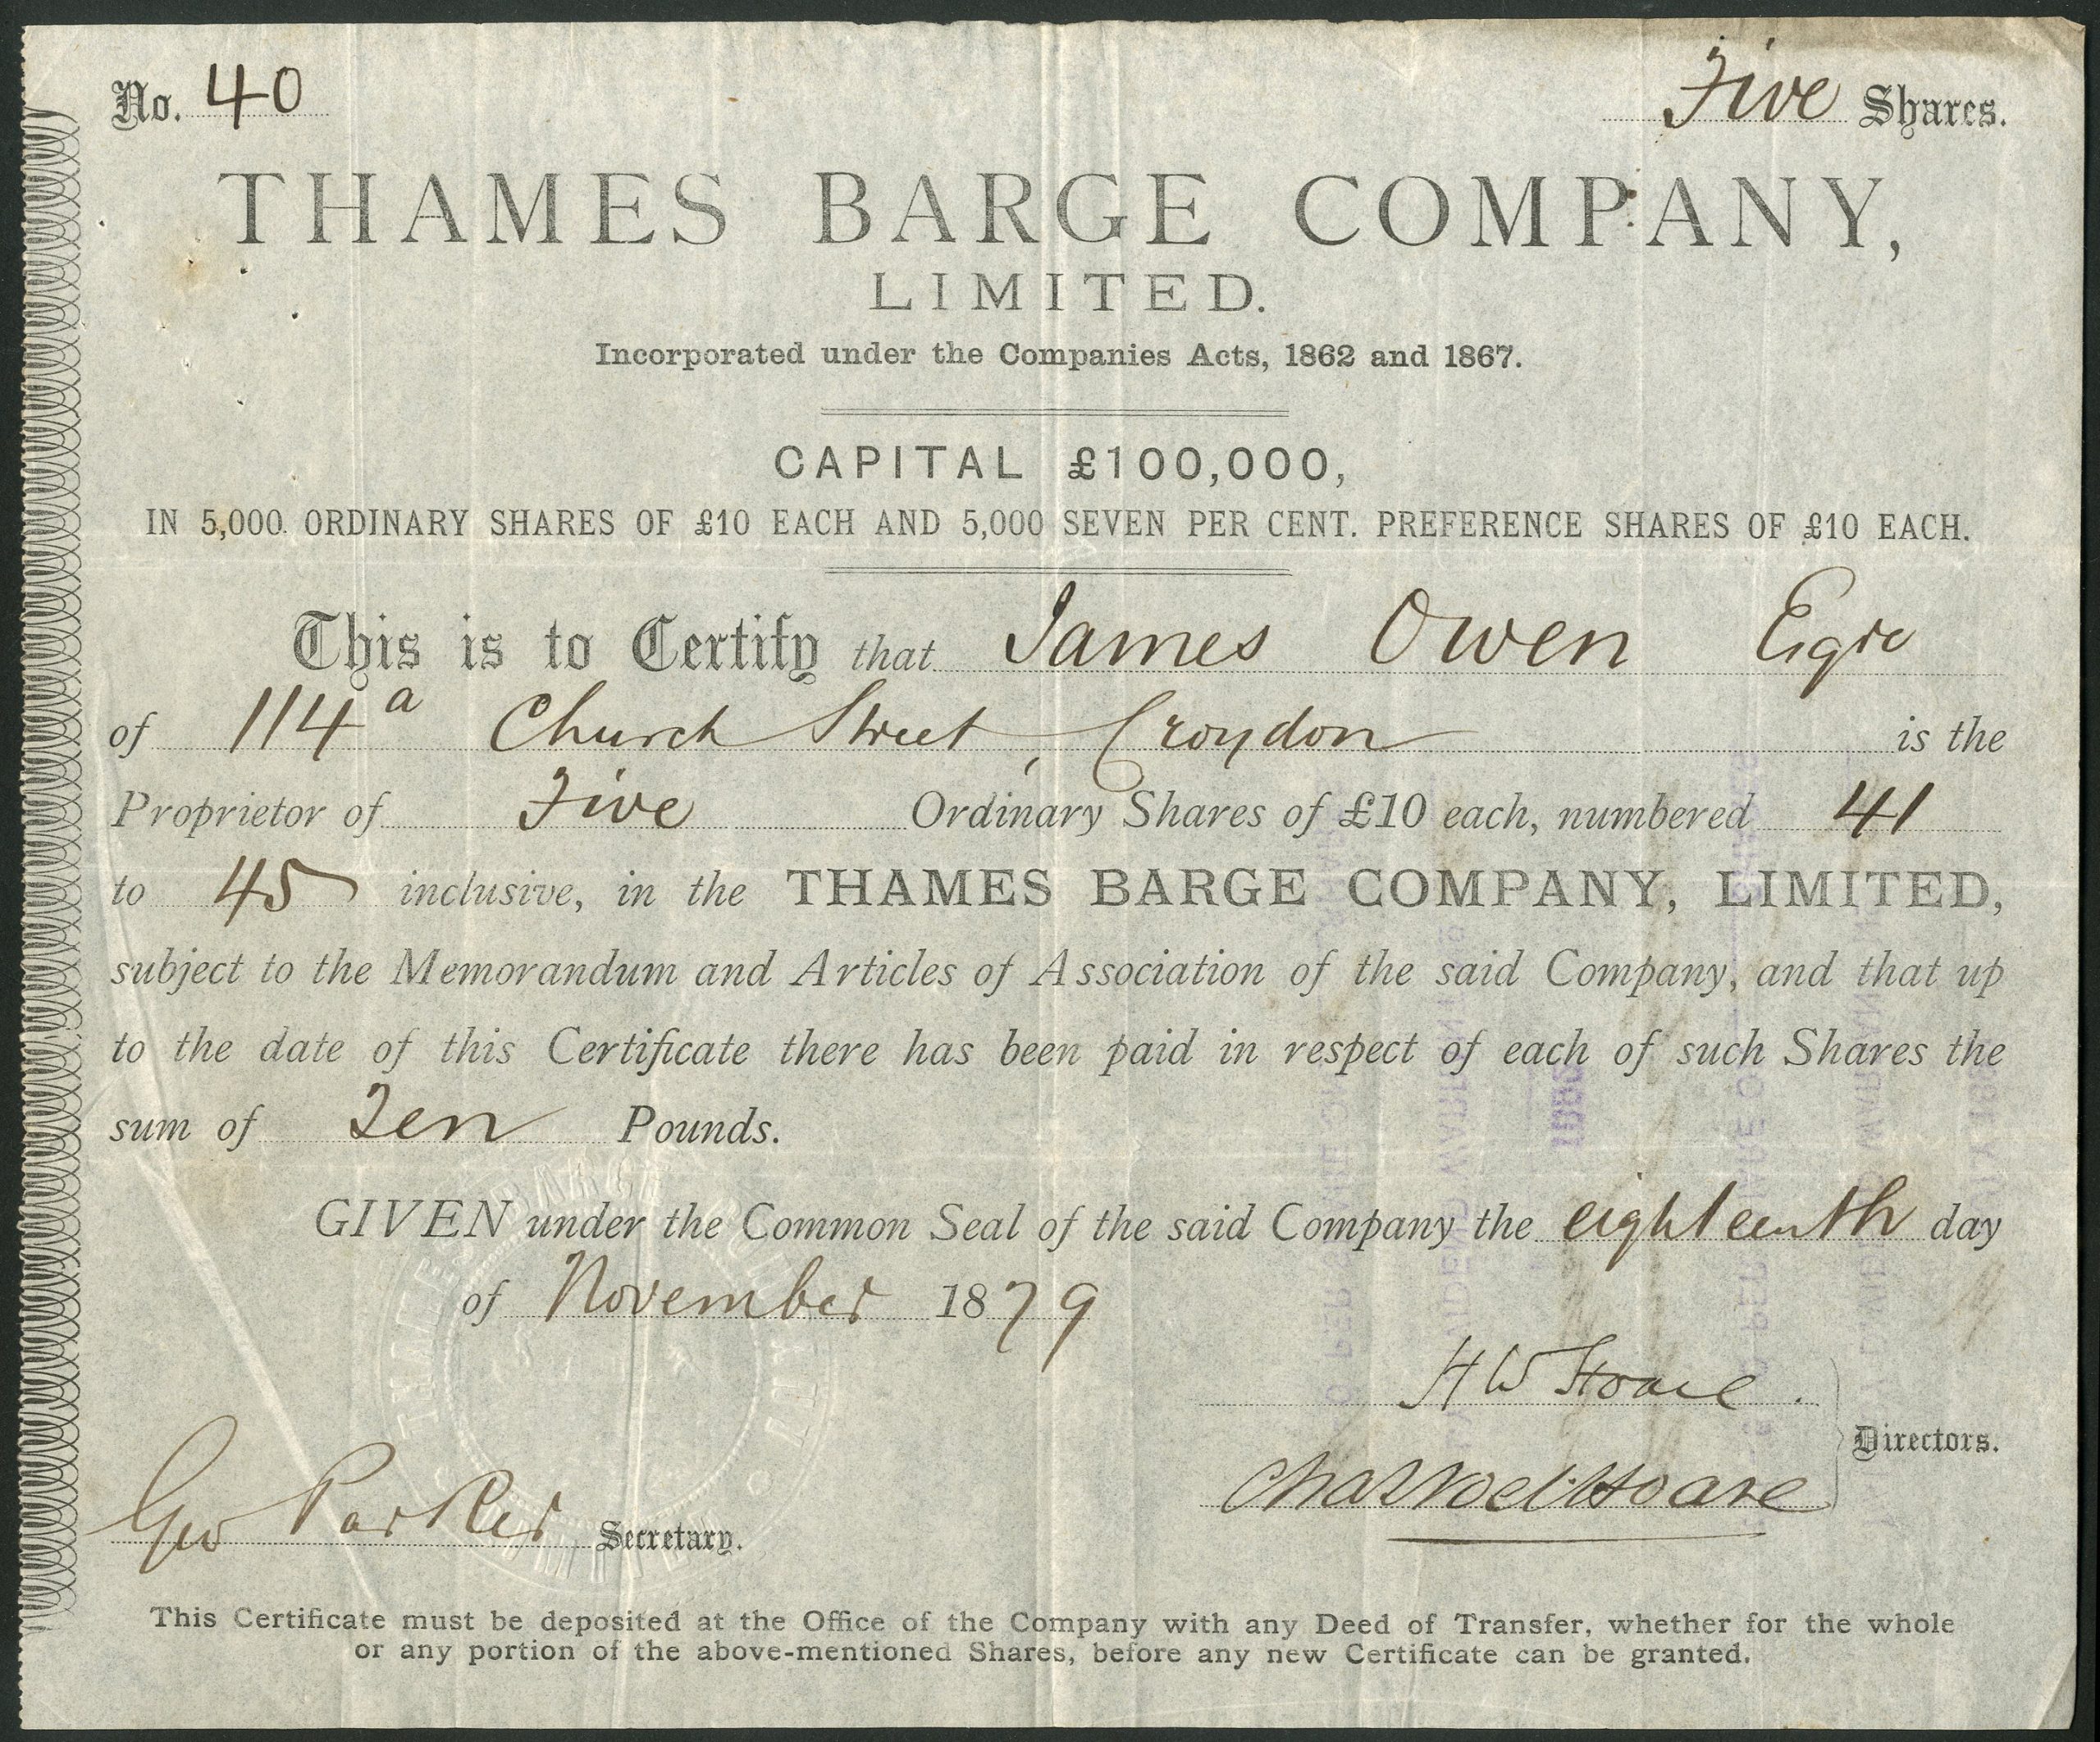 No. 40 Five Shares.
THAMES BARGE COMPANY,
LIMITED.
Incorporated under the Companies Acts, 1862 and 1867.
CAPITAL £100,000,
IN 5,000 ORDINARY SHARES OF £10 EACH AND 5,000 SEVEN PER CENT. PREFERENCE SHARES OF £10 EACH.
This is to Certify that James Owen Esqre
of 114a Church Street, Croydon is the
Proprietor of Five Ordinary Shares of £10 each, numbered 41
to 45 inclusive, in the THAMES BARGE COMPANY, LIMITED,
subject to the Memorandum and Articles of Association of the said Company, and that up
to the date of this Certificate there has been paid in respect of each of such Shares the
sum of Ten Pounds.
GIVEN under the Common Seal of the said Company the eighteenth day
of November 1879
H W Hoare
Directors.
Chas Noel Hoare
Geo Parker Secretary.
This Certificate must be deposited at the Office of the Company with any Deed of Transfer, whether for the whole
or any portion of the above-mentioned Shares, before any new Certificate can be granted.